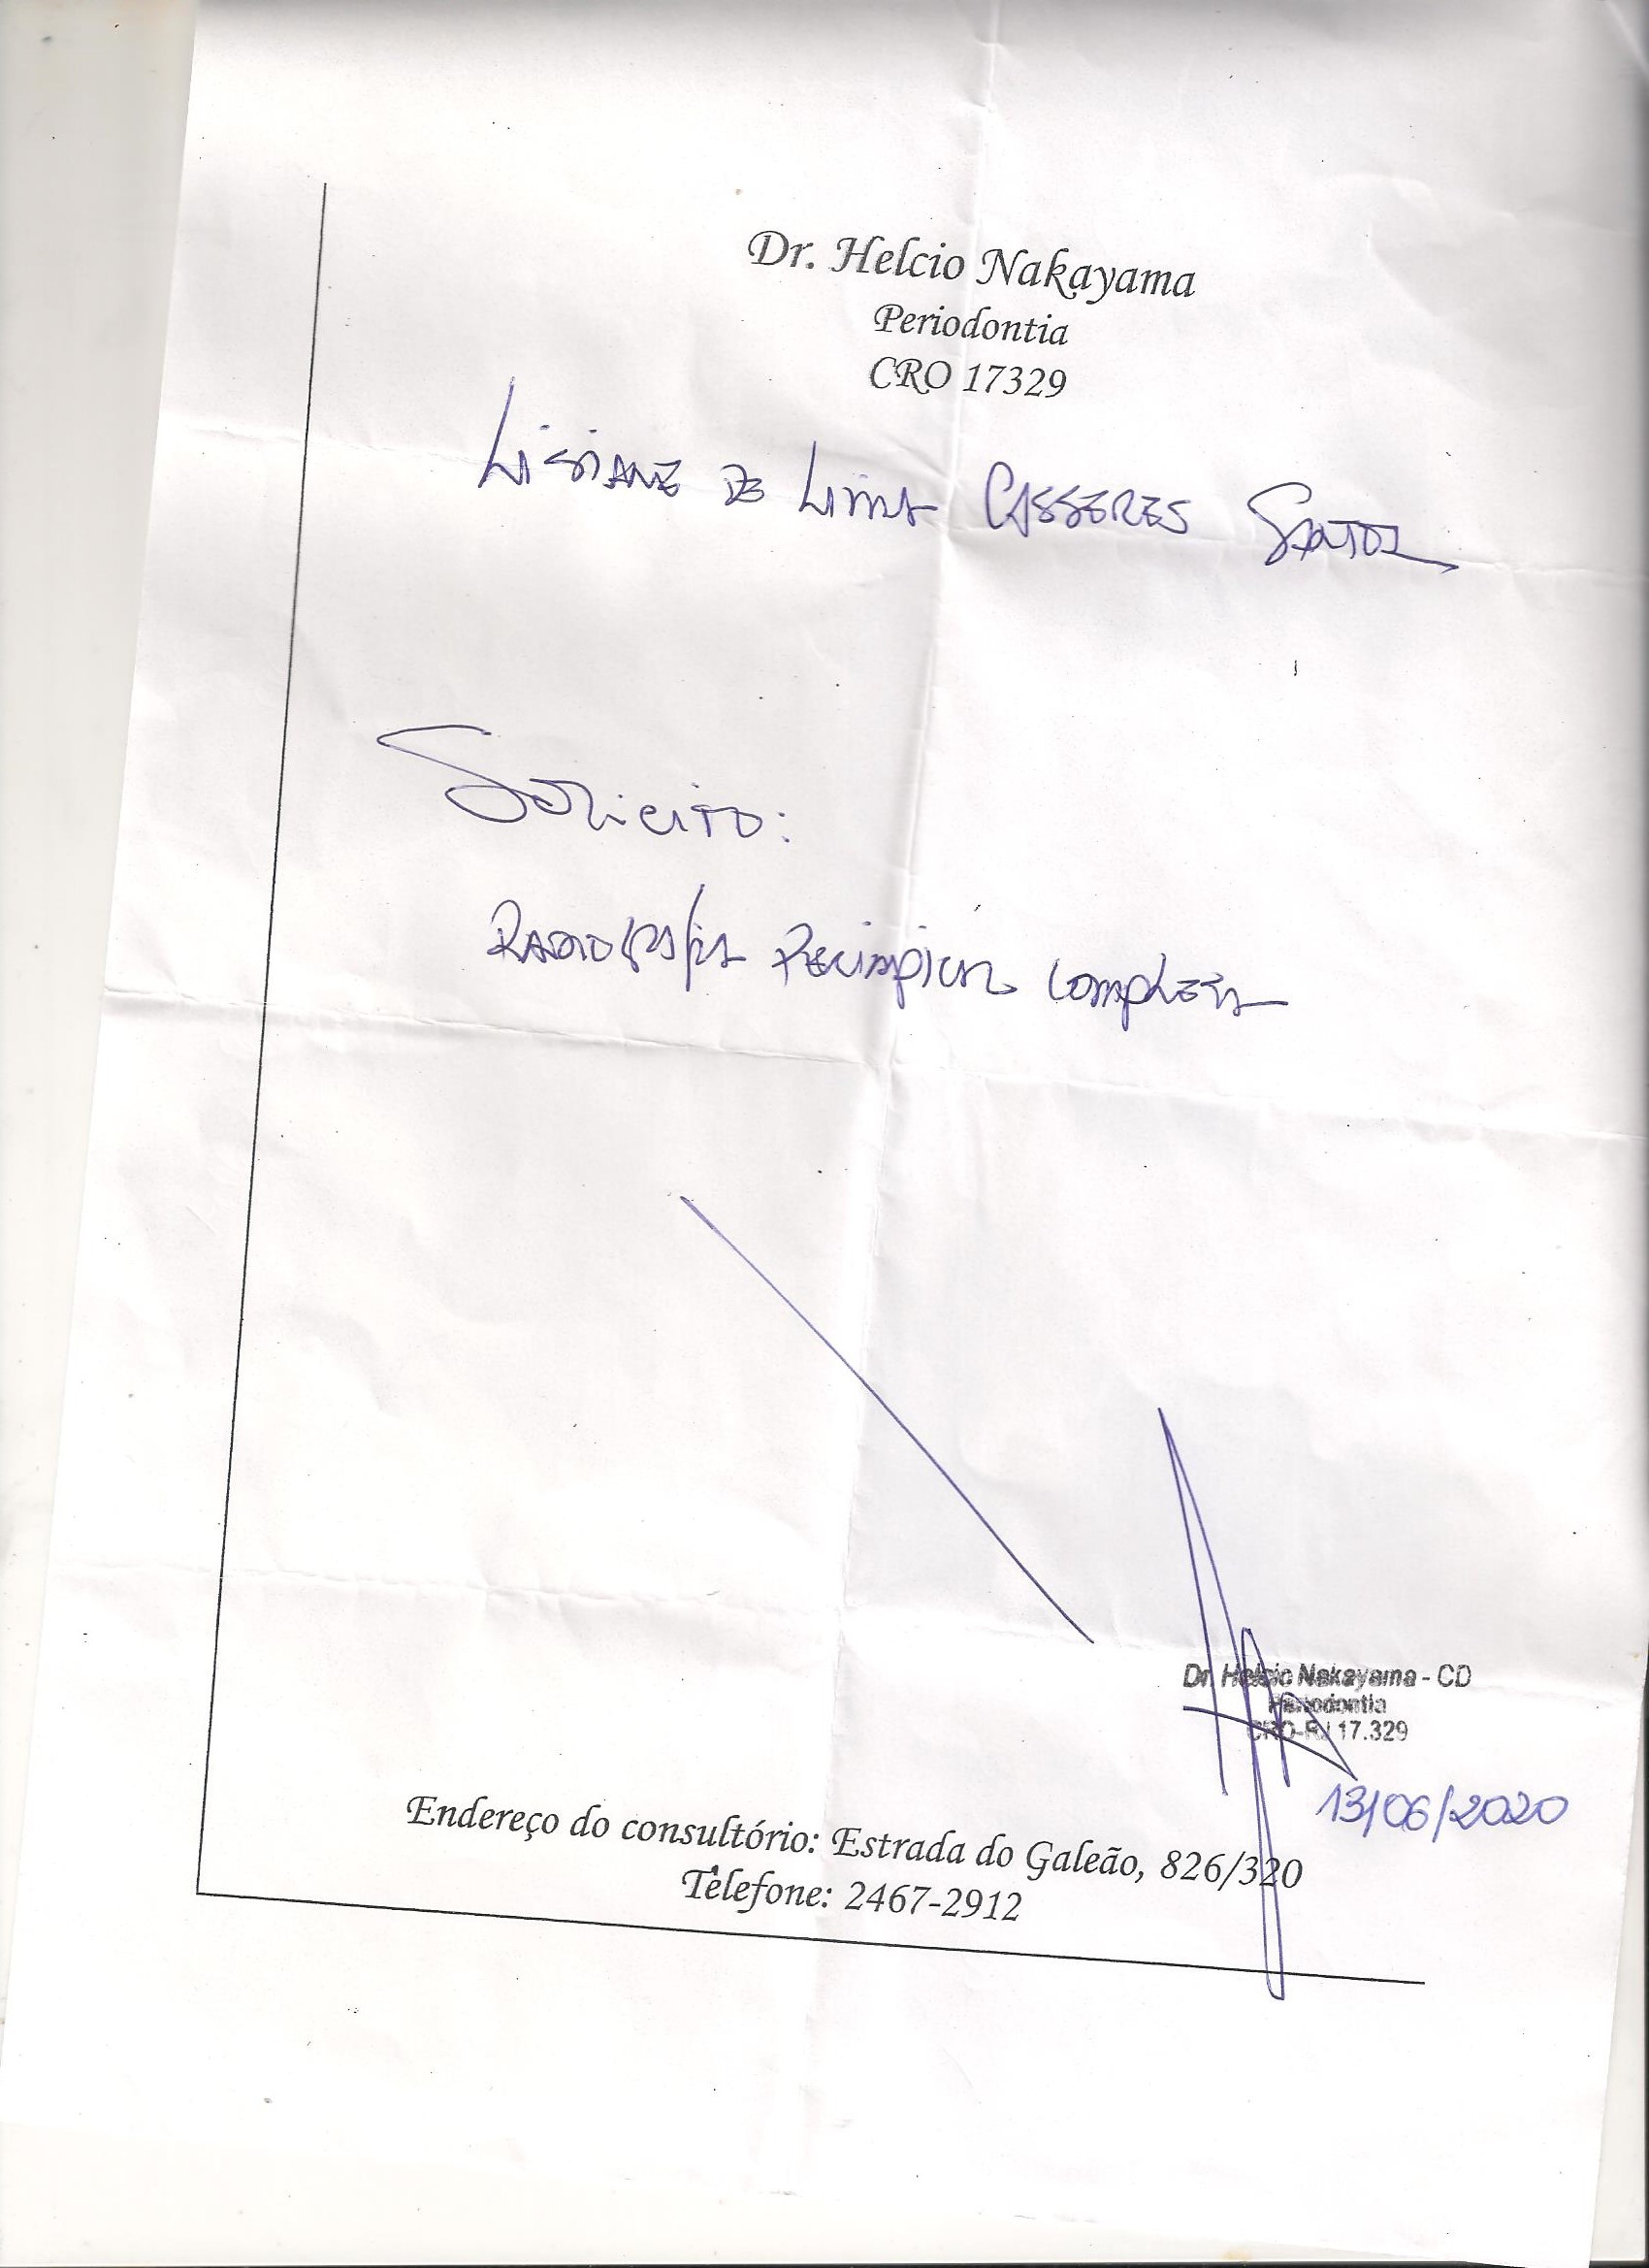 Dr. Helcio Nakayama
Periodontia
CRO 17329
LISIANE DE LIMA CASSERES SANTOS
SOLICITO:
RADIOGRAFIA PERIAPICAL COMPLETA
Dr. Helcio Nakayama - CD
Periodontia
CRO-RJ 17.329
13/06/2020
Endereço do consultório: Estrada do Galeão, 826/320
Telefone: 2467-2912